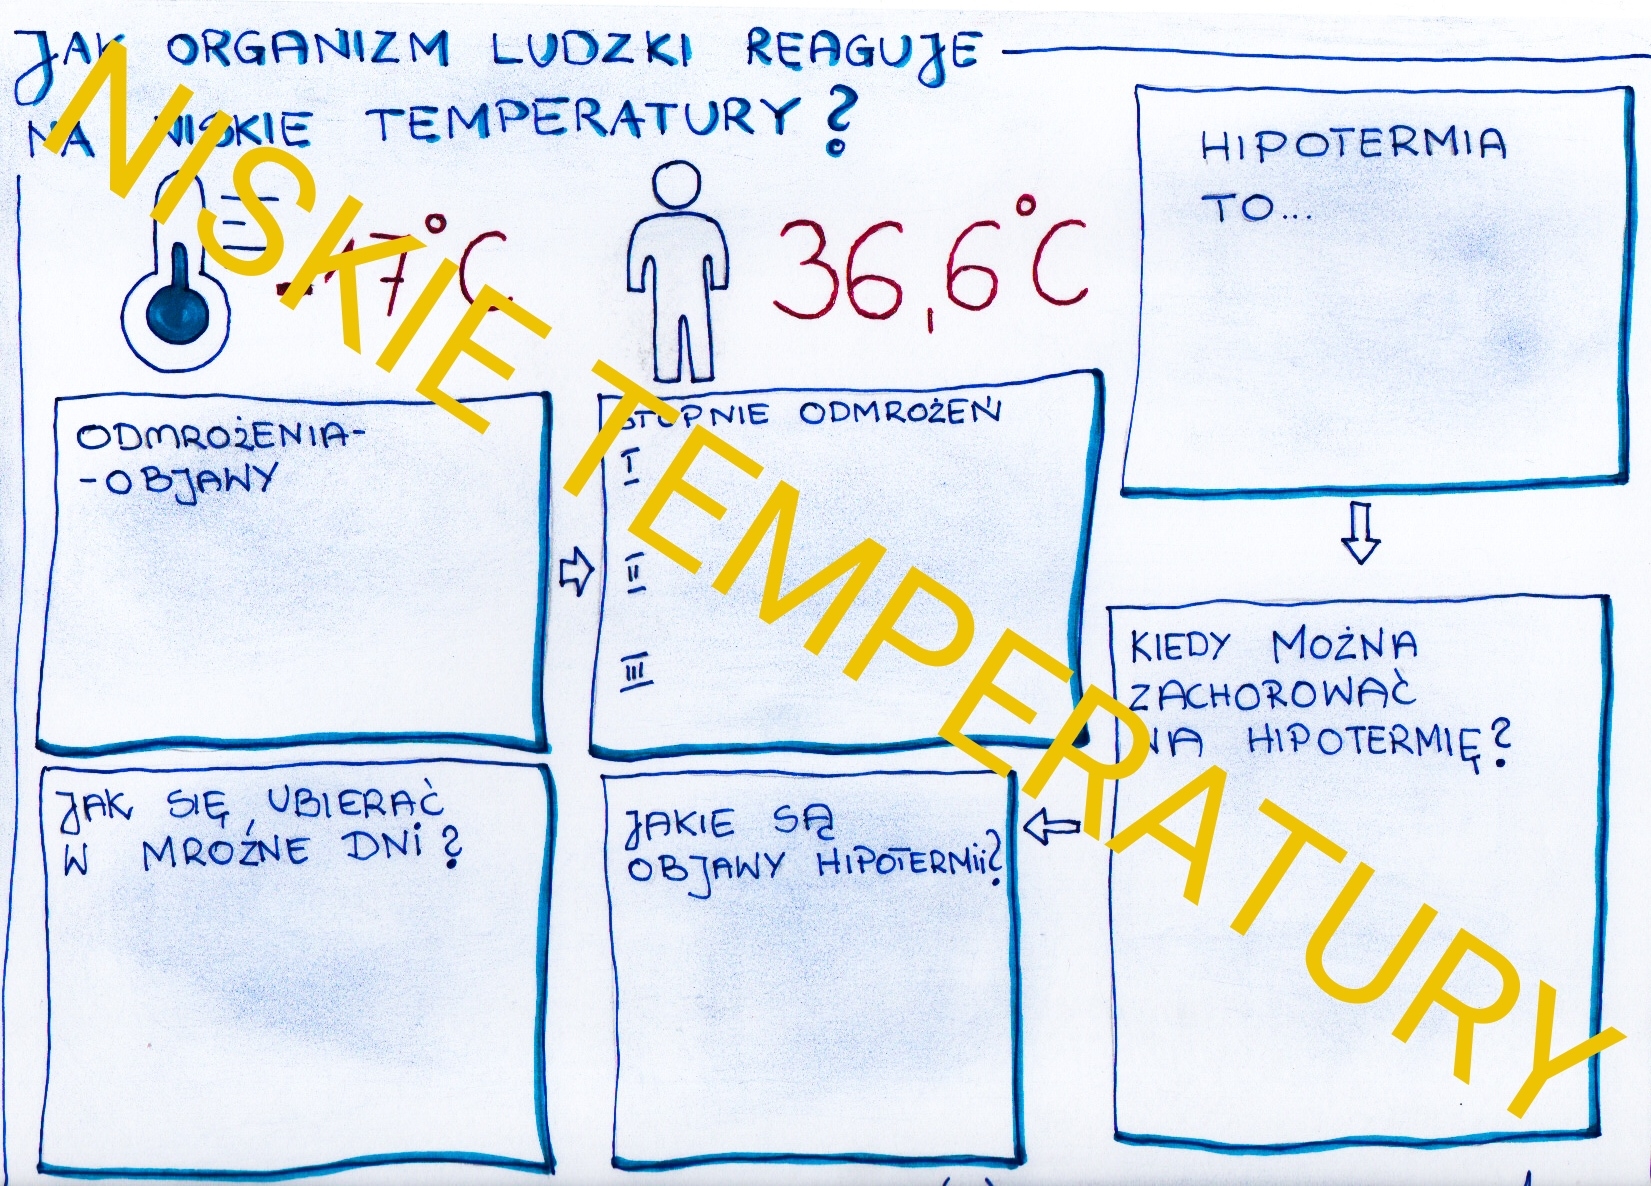 JAK ORGANIZM LUDZKI REAGUJE
NA NISKIE TEMPERATURY?
-17°C
36,6°C
HIPOTERMIA
TO...
ODMROŻENIA-
-OBJAWY
STOPNIE ODMROŻEŃ
I
II
III
KIEDY MOŻNA
ZACHOROWAĆ
NA HIPOTERMIĘ?
JAK SIĘ UBIERAĆ
W MROŹNE DNI?
JAKIE SĄ
OBJAWY HIPOTERMII?
NISKIE TEMPERATURY